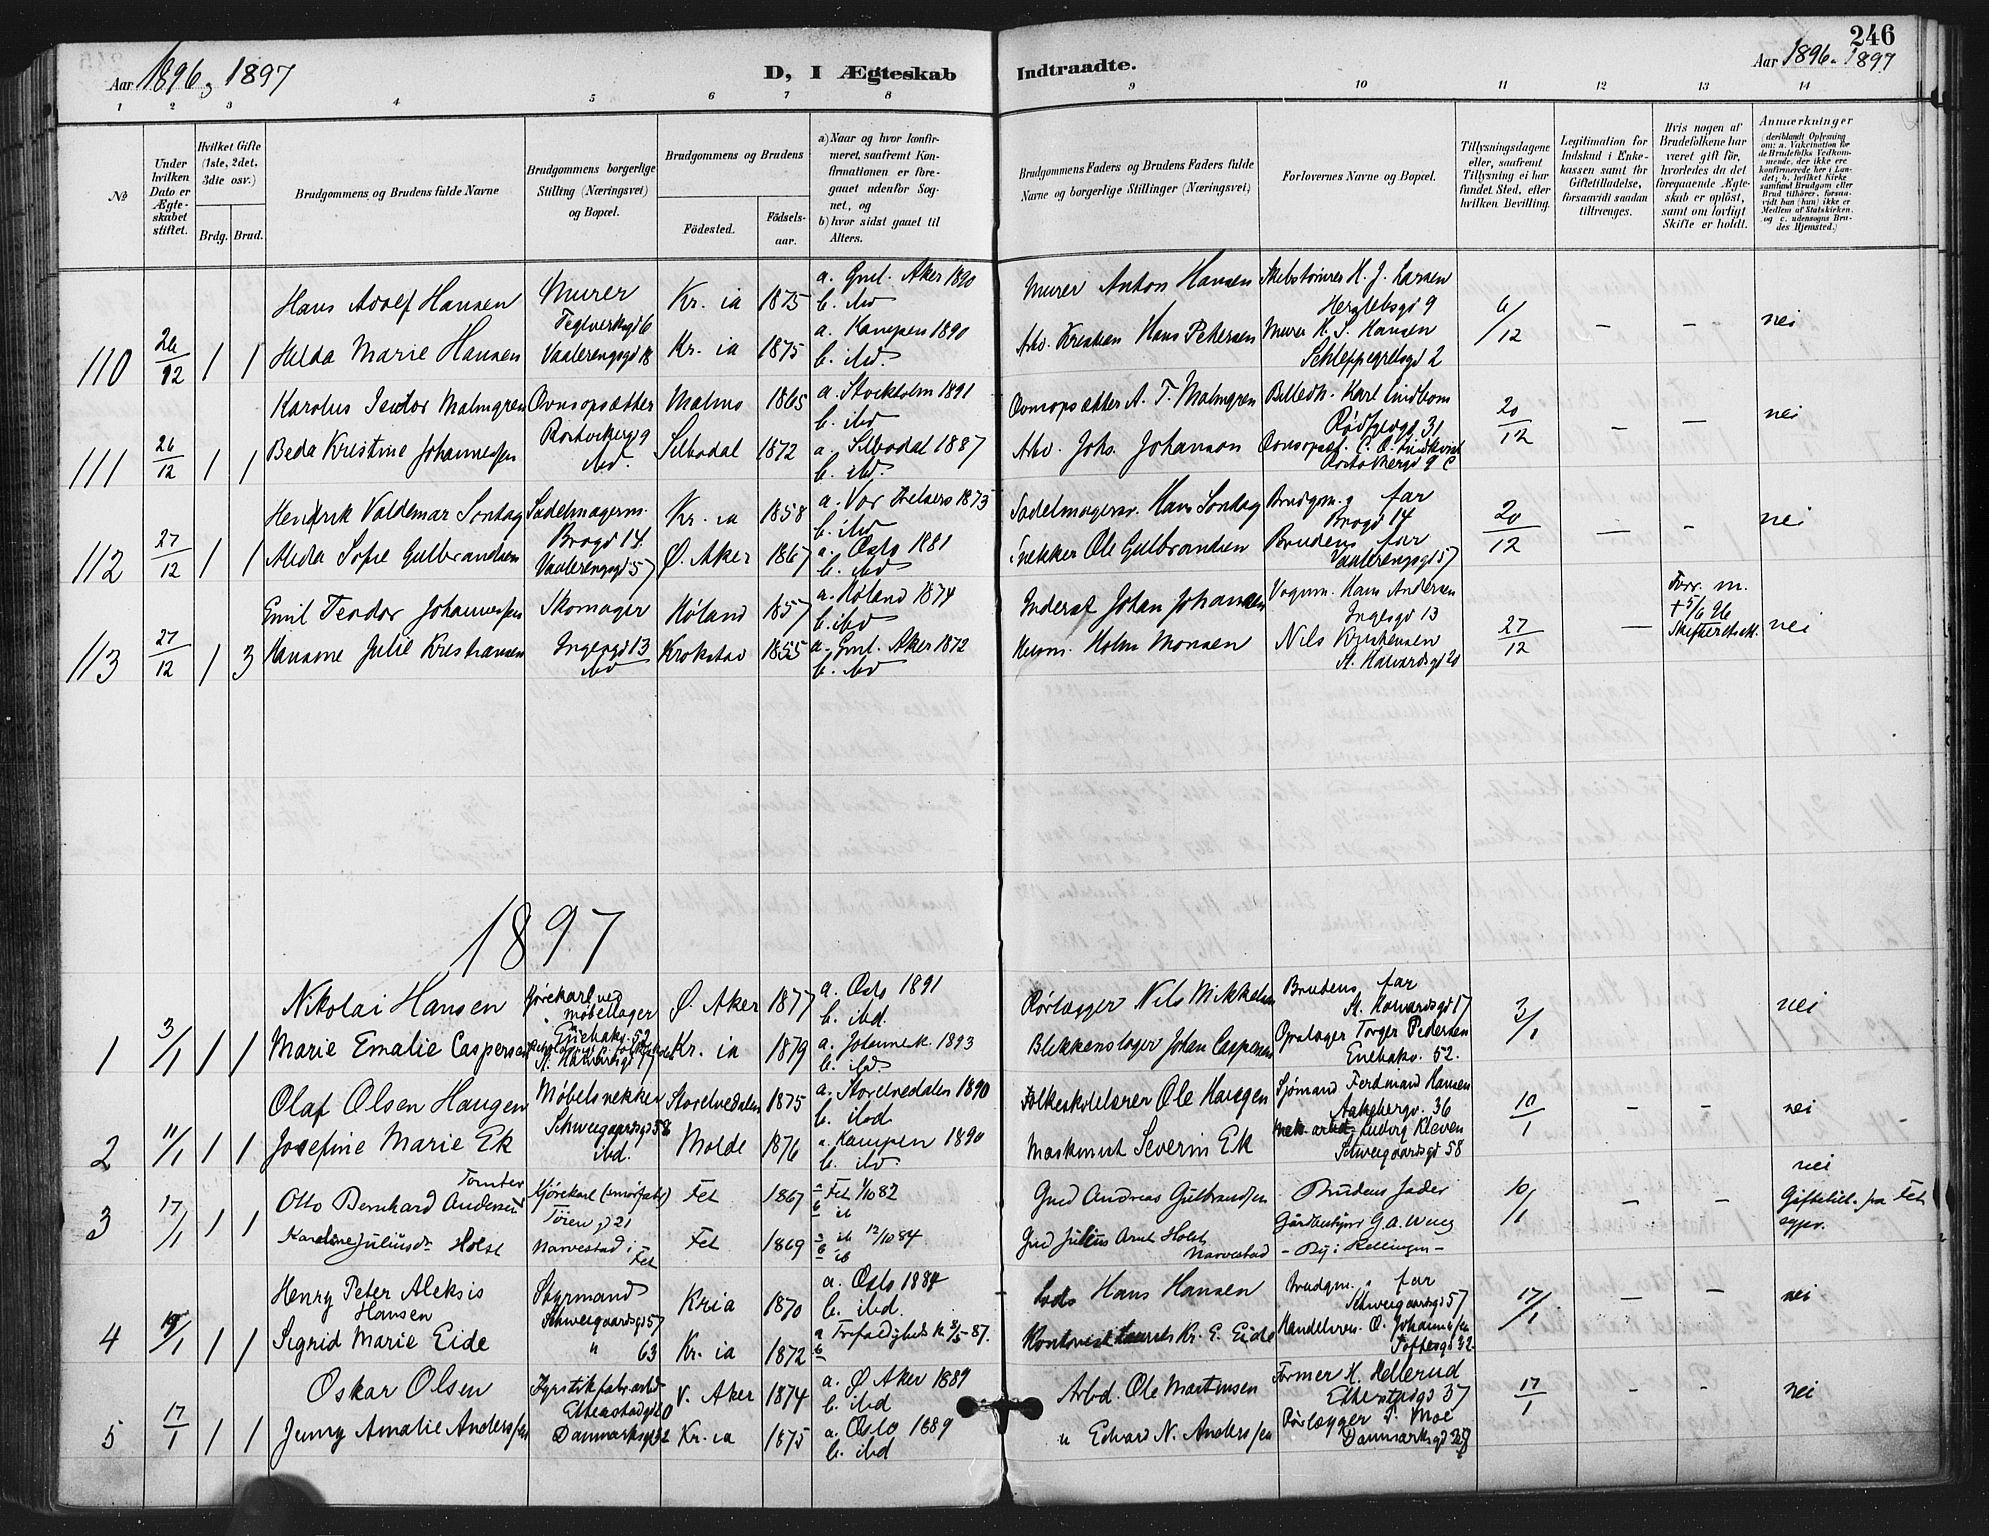 246
Aar 1896 & 1897
D, I Ægteskab Indtraadte.
Aar 1896. 1897
1 2 3 4 5 6 7 8 9 10 11 12 13 14
№
Under hvilken Dato er Ægteskabet stiftet.
Hvilket Gifte (1ste, 2det, 3die osv.)
Brdg. Brud.
Brudgommens og Brudens fulde Navne
Brudgommens borgerlige Stilling (Næringsvei) og Bopæl.
Brudgommens og Brudens
Fødested. Fødselsaar.
a) Naar og hvor konfirmeret, saafremt Konfirmationen er foregaaet udenfor Sognet, og
b) hvor sidst gaaet til Alters.
Brudgommens Faders og Brudens Faders fulde Navne og borgerlige Stillinger (Næringsvei)
Forlovernes Navne og Bopæl.
Tillysningsdagene eller, saafremt Tillysning ei har fundet Sted, efter hvilken Bevilling.
Legitimation for Indskud i Enkekassen samt for Giftetilladelse, forsaavidt saadan tiltrænges.
Hvis nogen af Brudefolkene har været gift før, hvorledes da det foregaaende Ægteskab er opløst, samt om lovligt Skifte er holdt.
Anmærkninger (deriblandt Oplysning om: a. Vakcination for de Brudefolks Vedkommende, der ikke ere konfirmerede her i Landet; b. hvilket Kirkesamfund Brudgom eller Brud tilhører, forsaavidt han (hun) ikke er Medlem af Statskirken, og c. udensogns Brudes Hjemsted.)
Hans Adolf Hansen Murer Teglverksgd 6 Kr. ia 1875 a. Gml. Aker 1890 b. ibd Murer Anton Hansen H. J. Larsen Herslebsgd 9 6/12 – – nei
110 26/12 1 1 Helda Marie Hansen Vaalerengsgd 18 Kr. ia 1875 a. Kampen 1890 b. ibd. Arb. Kristian Hans Pettersen Murer H. S. Hansen Schleppegrelsgd 2
Karolus Isidor Malmgren Ovnsopsætter Rostockergd 9 Malmø 1865 a. Stockholm 1891 b. ibd Ovnsopsætter A. T. Malmgren Billedh. Karl Lindbom Rødfyldgd 31 20/12 – – nei
111 26/12 1 1 Beda Kristine Johannessen ibd. Silbodal 1872 a. Silbodal 1887 b. ibd. Arb. Johs. Johanson Ovnsopsæt. C. O. Lindkvist 9 c
Hendrik Valdemar Sontag Sadelmagerm. Brogd 14. Kr. ia 1858 a. Vor Frelsers 1873 b. ibd Sadelmagersv. Hans Sontag Brudgom. far Brogd 14 20/12 – – nei
112 27/12 1 1 Alida Sofie Gulbrandsen Vaalerengsgd 57 Ø. Aker 1867 a. Oslo 1881 b. ibd Snekker Ole Gulbrandsen Brudens far Vaalerengsgd 57
Emil Teodor Johannessen Skomager Ingesgd 13 Høland 1857 a. Høland 1874 b. ibd Inderst Johan Johansen Vognm. Hans Andersen Ingesgd 13 27/12 – Forr. m. † 5/6 96 Skifteretsatt. nei
113 27/12 1 3 Hansine Julie Kristiansen ibd Krokstad 1855 a. Gml. Aker 1872 b. ibd Husm. Holm Monsen Nils Kristensen St. Halvardsgd 20
1897
Nikolai Hansen Kjørekarl ved møbellager Enebakv. 52 Ø. Aker 1877 a. Oslo 1891 b. ibd. Rørlægger Nils Mikkelsen Brudens far St. Halvardsgd 17 3/1 nei
1 3/1 1 1 Marie Emalie Caspersen St. Halvardsgd 17 Kr. ia 1879 a. Johannek. 1893 b. ibd. Blikkenslager Johan Caspersen Opsatager Torger Pedersen Enebakv. 52.
Olaf Olsen Haugen Møbelsnekker Schweigaardsgd 58 Storelvedalen 1875 a. Storelvedalen 1890 b. ibd. Folkeskolelærer Ole Haugen Sjømand Ferdinand Hansen Aakebergv. 36 10/1 – – nei
2 11/1 1 1 Josefine Marie Ek ibd. Molde 1876 a. Kampen 1890 b. ibd. Maskinist Severin Ek Mek. arbd. Ludvig Kleven Schweigaardsgd 58
Otto Bernhard Andersen Tomter Kjørekarl (smørfabr) Tøien gd 21 Fet 1867 a Fet 1/10 82 b ib Grd Andreas Gulbrandsen Brudens fader 10/1 – – nei Giftetill. fra Fet
3 17/1 1 1 Karoline Juliusdr. Holst Narvestad i Fet Fet 1869 a ib 12/10 84. b ib Grd Julius Arnt Holst Narvestad Gårdbestyrer G. A. Wung – By i Rellingen –
Henry Peter Aleksis Hansen Styrmand Schweigaardsgd 57 Kria 1870 a. Oslo 1884 b. ibd. Lods Hans Hansen Brudgm. far Schweigaardsgd 57 17/1 – – nei
4 1 1 Sigrid Marie Eide " 63 Kr. ia 1872 a Trefoldigheds k. 3/5 87. b Kontorist Laurits Kr. E. Eide Handelsrei. O. Johannesen Toftesgd 32.
Oskar Olsen Fyrstikfabrarbd Etterstadgd 20 V. Aker 1874 a. Ø Aker 1889 b. ibd Arbd. Ole Martinsen Former H. Hellerud Etterstadgd 37 17/1 – – nei
5 17/1 1 1 Jenny Amalie Anderssen Danmarksgd 32 Kr. ia 1875 a. Oslo 1889 b. ibd " Edvard N. Anderssen Rørlægger P. Moe Danmarksgd